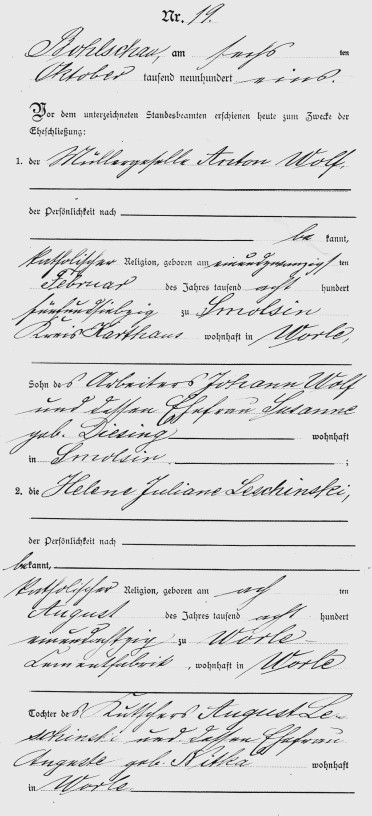 Nr. 19.
Bohlschau, am sechs ten
Oktober tausend neunhundert eins.
Vor dem unterzeichneten Standesbeamten erschienen heute zum Zwecke der
Eheschließung:
1. der Müllergeselle Anton Wolf,
der Persönlichkeit nach
be kannt,
katholischer Religion, geboren am einundzwanzigs ten
Februar des Jahres tausend acht hundert
fünfundsiebzig zu Smolsin
Kreis Karthaus wohnhaft in Worle,
Sohn des Arbeiters Johann Wolf
und dessen Ehefrau Susanne
geb. Diesing wohnhaft
in Smolsin. ;
2. die Helene Juliane Leschinski,
der Persönlichkeit nach
bekannt,
katholischer Religion, geboren am ach ten
August des Jahres tausend acht hundert
einundachtzig zu Worle-
Cementfabrik, wohnhaft in Worle
Tochter des Kutschers August Le-
schinski und dessen Ehefrau
Auguste geb. Nitka wohnhaft
in Worle